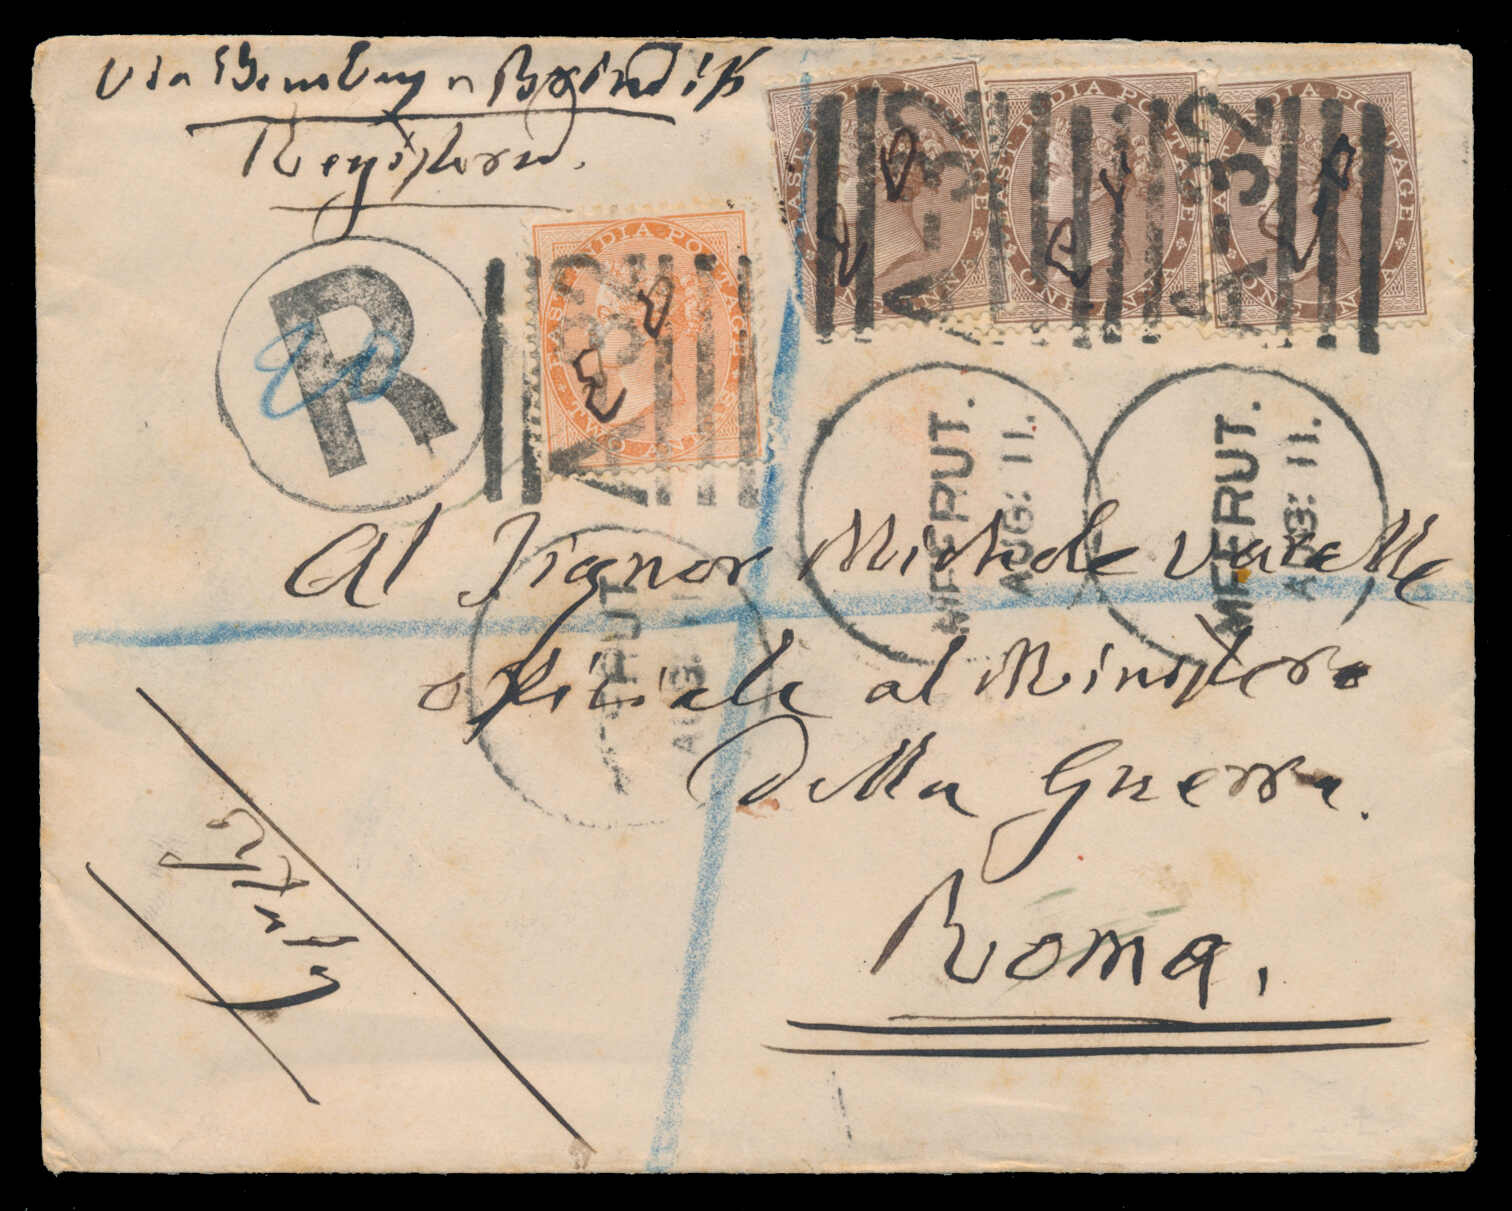 via Bombay n Brindisi
Registered.
EAST INDIA POSTAGE
ONE ANNA
EAST INDIA POSTAGE
ONE ANNA
EAST INDIA POSTAGE
ONE ANNA
EAST INDIA POSTAGE
TWO ANNAS
R
MEERUT.
AUG: 11.
MEERUT.
AUG: 11.
Al Signor Michele
Officiale al Ministero
Della Guerra.
Roma.
Italy